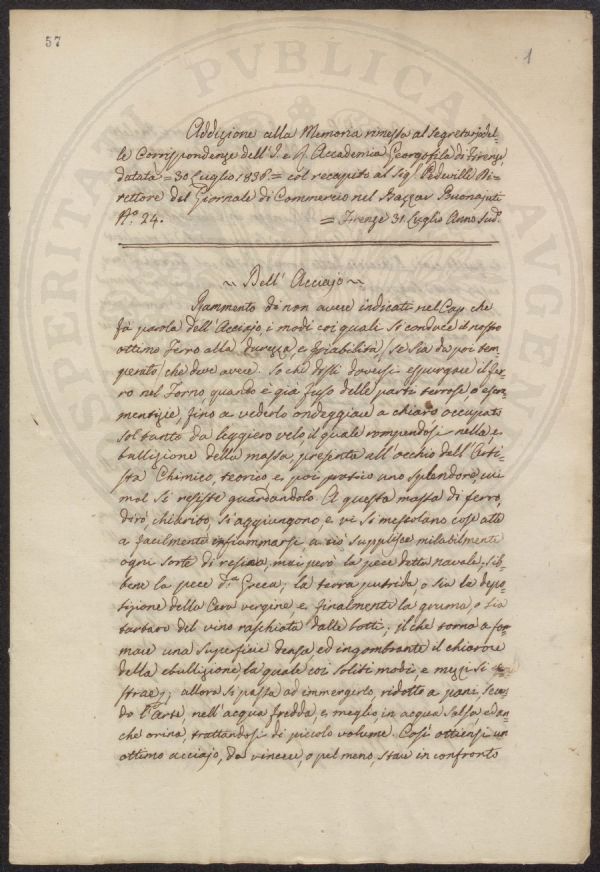 57
1
Addizione alla Memoria rimessa al Segretario del-
le Corrispondenze dell' I. e R. Accademia Georgofila di Firenze,
datata = 30 Luglio 1836 = col recapito al Sig.r Pedevilla Di-
rettore del Giornale di Commercio nel Bazzar Buonajuti
N.o 24. = Firenze 31. Luglio Anno Sud.o
~ Dell' Acciajo ~
Rammento di non avere indicati nel Cap che
fà parola dell'Acciajo, i modi coi quali si conduce il nostro
ottimo Ferro alla durezza, e friabilità (se sia da poi tem-
perato) che dive avere. So che dissi doversi espurgare il fer-
ro nel Forno, quando è già fuso delle parti terrose, o escre-
mentizie, fino a vederlo ondeggiare a chiaro occupato
soltanto da leggiero velo, il quale rompendosi nella, e-
bullizione della massa, presenta all'occhio dell'Arti-
sta Chimico, teorico, e poi pratico uno splendore, cui
mal si resiste guardandolo. A questa massa di ferro,
dirò, si aggiungono, e vi si mescolano cose atte
a facilmente infiammarsi, a ciò supplisce mirabilmente
ogni sorte di resina, mai però la pece detta navale, sib-
bene la pece d.a Greca; la terra putrida, o sia la depo-
sizione della Cera vergine, e finalmente la gruma, o sia
tartaro del vino raschiata dalle botti; il che torna a for-
mare una superficie densa, ed ingombrante il chiarore
della ebullizione la quale coi soliti modi, e mezzi si e-
strae; allora si passa ad immergerlo, ridotto a pani, secon-
do l'Arte, nell'acqua fredda, e meglio in acqua salsa ed an-
che orina, trattandosi di piccolo volume. Così ottiensi un
ottimo acciajo, da vincere, o pel meno, stare in confronto